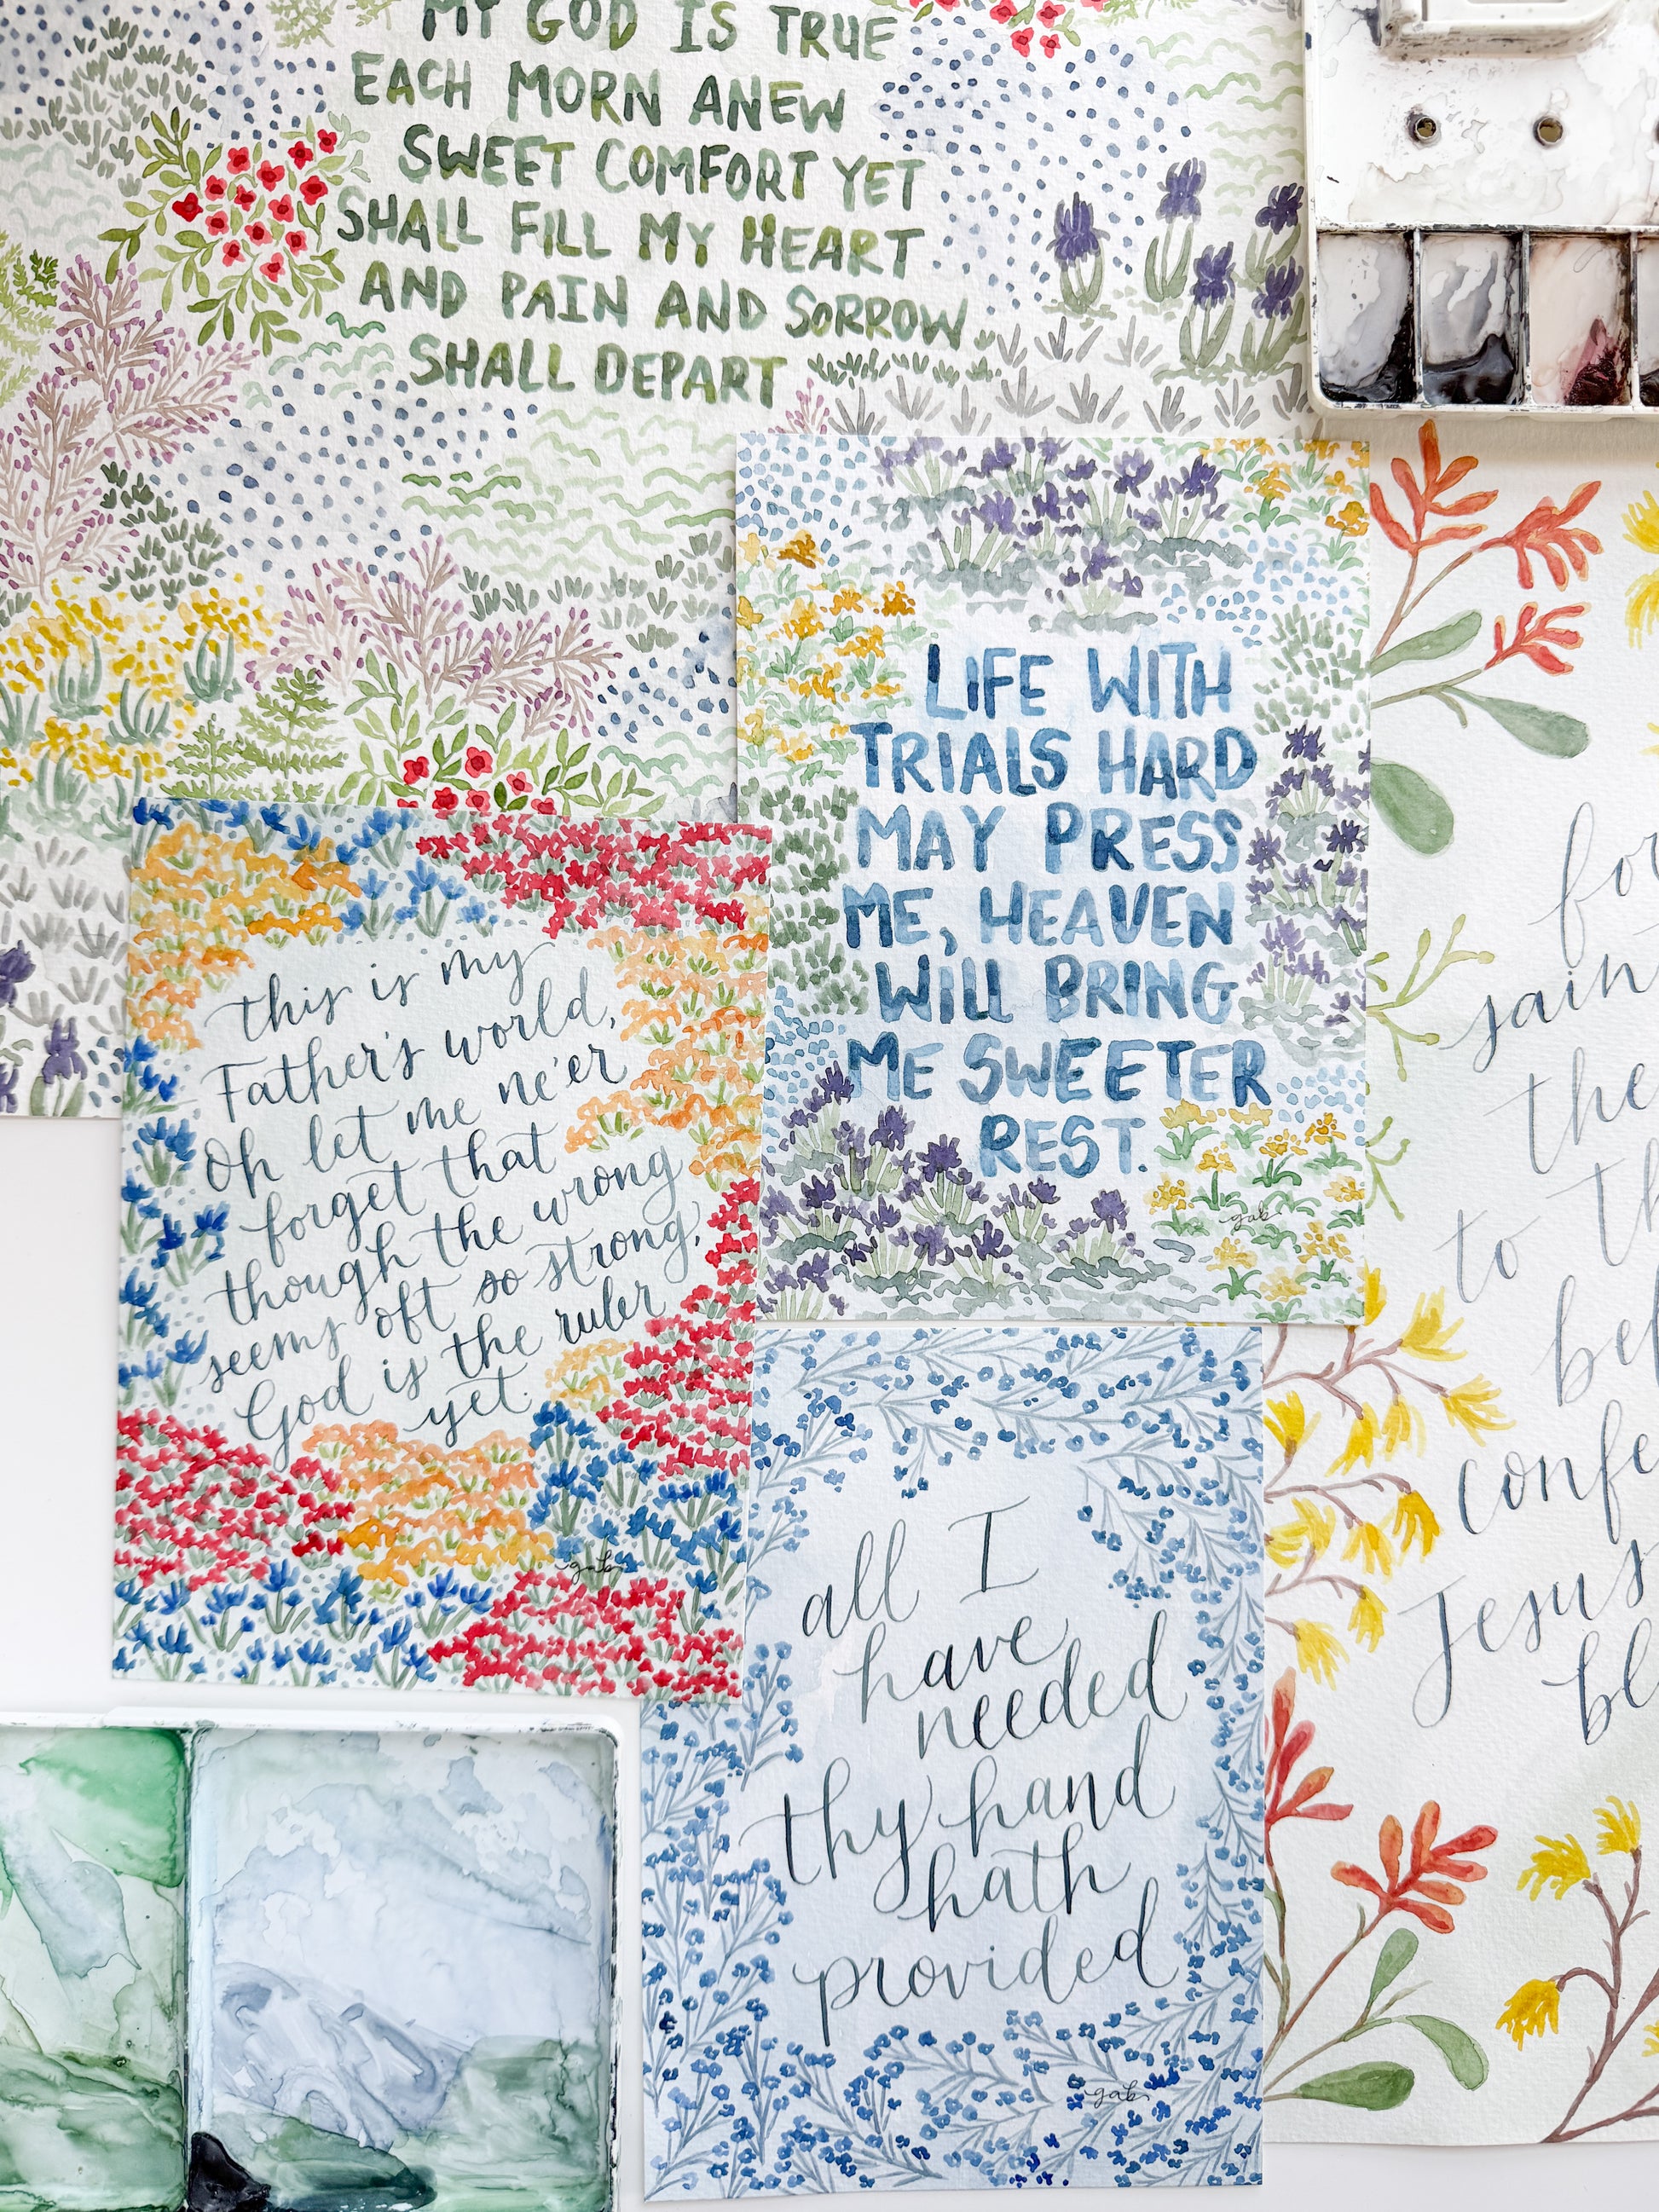 MY GOD IS TRUE
EACH MORN ANEW
SWEET COMFORT YET
SHALL FILL MY HEART
AND PAIN AND SORROW
SHALL DEPART
LIFE WITH
TRIALS HARD
MAY PRESS
ME, HEAVEN
WILL BRING
ME SWEETER
REST.
gab
this is my
Father's world,
Oh let me ne'er
forget that
though the wrong
seems oft so strong,
God is the ruler
yet.
gab
all I
have
needed
thy hand
hath
provided
gab
the
to
Jesus